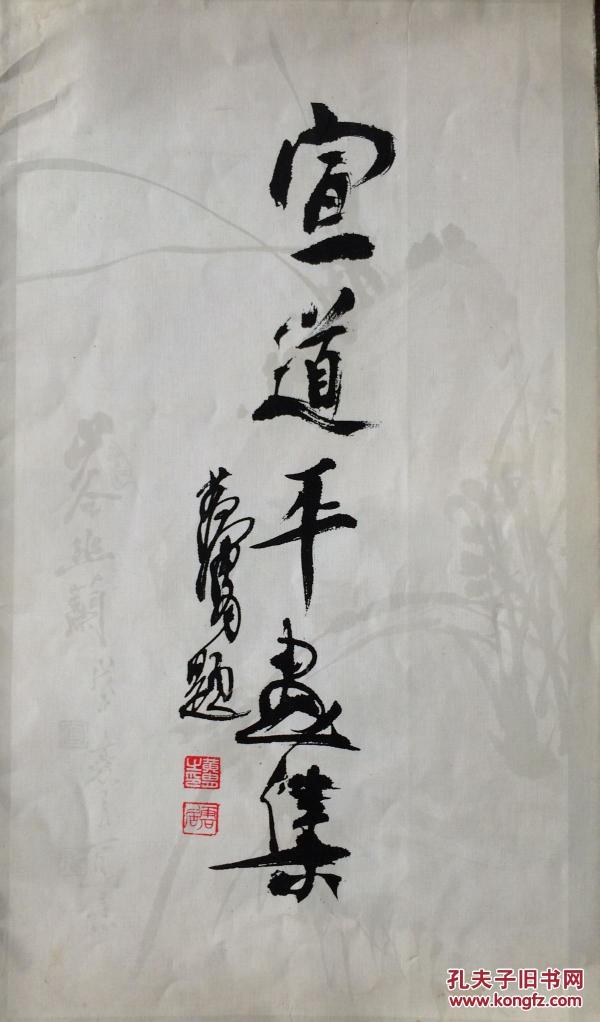 宣道平畫集
黄胄题
黄胄之印
谷幽蘭
孔夫子旧书网
www.kongfz.com